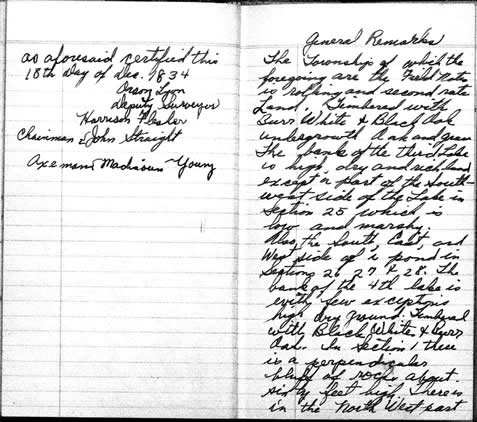 as aforesaid certified this
18th Day of Dec. 1834
Orson Lyon
Deputy Surveyor
Harrison
Chainman & John Straight
Axeman Madison Young
General Remarks
The Township of which the
foregoing are the Field Notes
is rolling and second rate
Land. Timbered with
Burr White & Black Oak
undergrowth Oak and grass
The bank of the third Lake
is high, dry and rich land
except a part of the South-
west side of the Lake in
Section 25 which is
low and marshy.
Also, the South, East, and
West side of a pond in
Sections 26 27 & 28. The
bank of the 4th lake is
with few exceptions
high dry ground. Timbered
with Black White & Burr
Oak. In Section 1 there
is a perpendicular
bluff of rocks about
sixty feet high There is
in the North West east